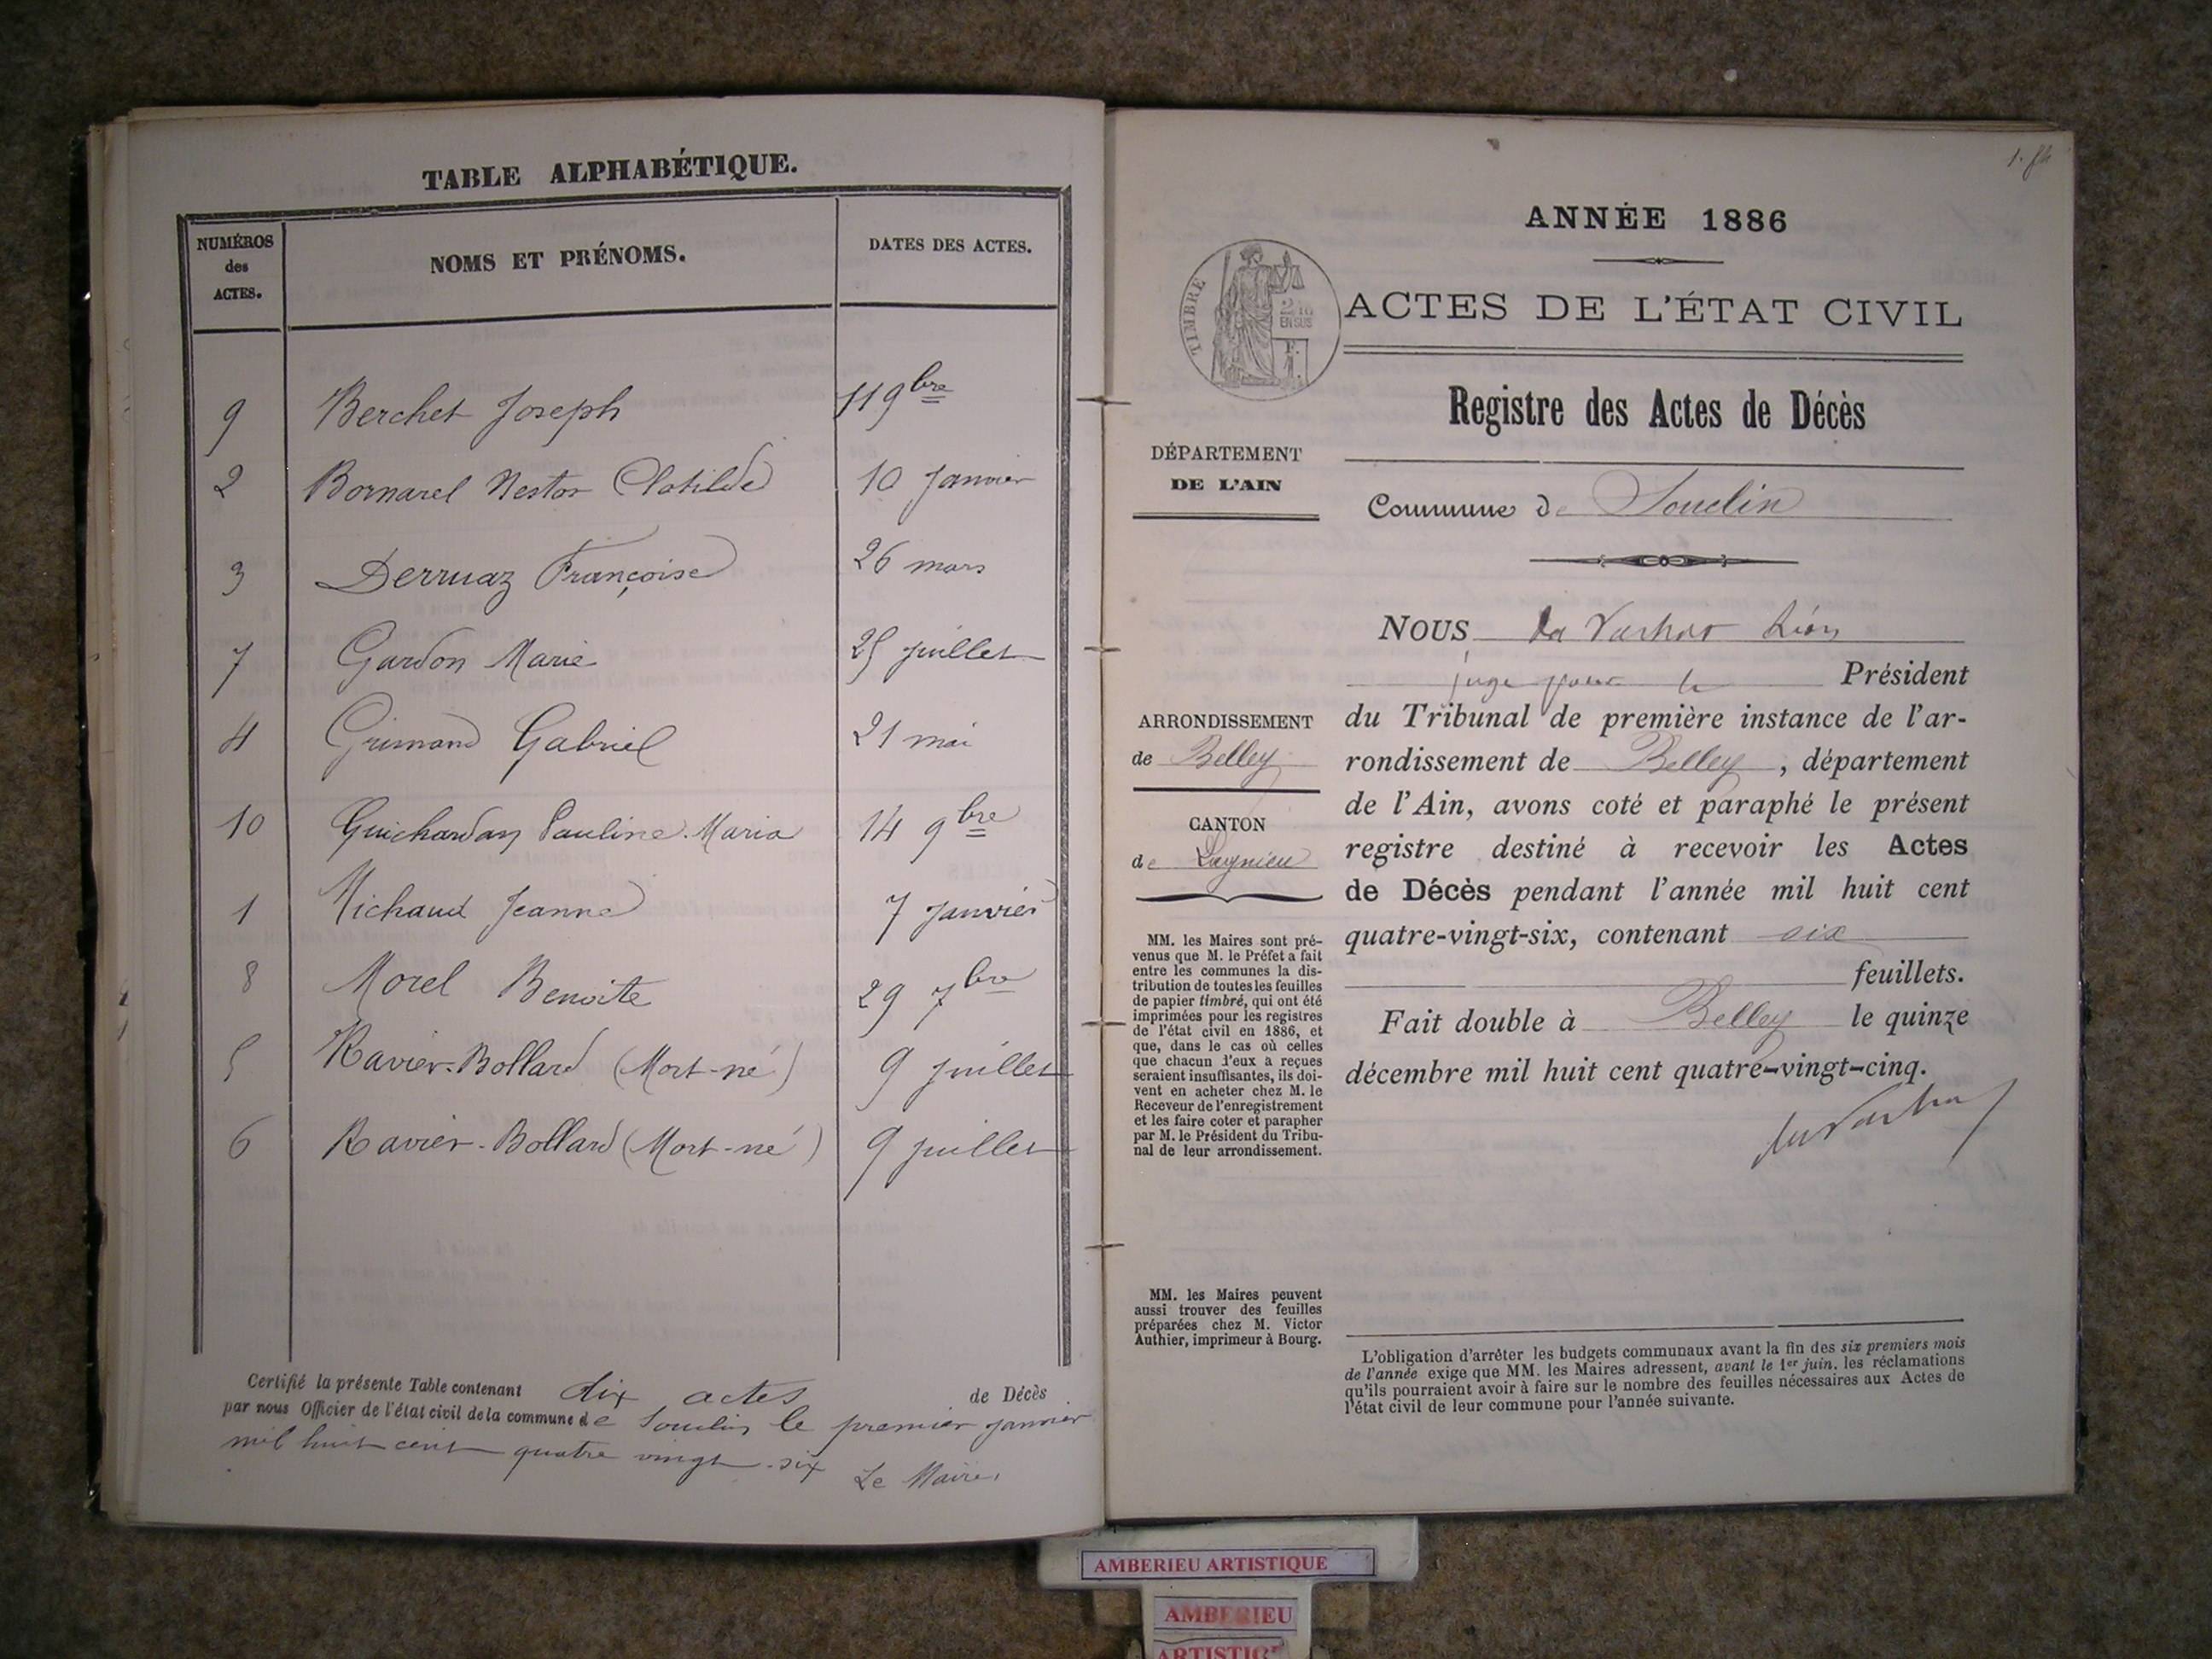 TABLE ALPHABÉTIQUE.
NUMÉROS des ACTES.
NOMS ET PRÉNOMS.
DATES DES ACTES.
9 Berchet Joseph 11 9bre
2 Bornarel Nestor Clotilde 10 Janvier
3 Derruaz Françoise 26 mars
7 Gardon Marie 25 juillet
4 Grimand Gabriel 21 mai
10 Guichardan Pauline Maria 14 9bre
1 Michaud Jeanne 7 Janvier
8 Morel Benoite 29 7bre
5 Ravier-Bollard (Mort-né) 9 Juillet
6 Ravier-Bollard (Mort-né) 9 juillet
Certifié la présente Table contenant dix actes de Décès
par nous Officier de l'état civil de la commune de Souclin le premier janvier
mil huit cent quatre vingt-six
Le Maire,
ANNÉE 1886
TIMBRE
2/10
EN SUS
ACTES DE L'ÉTAT CIVIL
Registre des Actes de Décès
DÉPARTEMENT
DE L'AIN
Commune de Souclin
NOUS Léon
juge pour le Président
du Tribunal de première instance de l'ar-
rondissement de Belley, département
de l'Ain, avons coté et paraphé le présent
registre destiné à recevoir les Actes
de Décès pendant l'année mil huit cent
quatre-vingt-six, contenant six
feuillets.
Fait double à Belley le quinze
décembre mil huit cent quatre-vingt-cinq.
ARRONDISSEMENT
de Belley
CANTON
de Lagnieu
MM. les Maires sont pré-
venus que M. le Préfet a fait
entre les communes la dis-
tribution de toutes les feuilles
de papier timbré, qui ont été
imprimées pour les registres
de l'état civil en 1886, et
que, dans le cas où celles
que chacun d'eux a reçues
seraient insuffisantes, ils doi-
vent en acheter chez M. le
Receveur de l'enregistrement
et les faire coter et parapher
par M. le Président du Tribu-
nal de leur arrondissement.
MM. les Maires peuvent
aussi trouver des feuilles
préparées chez M. Victor
Authier, imprimeur à Bourg.
L'obligation d'arrêter les budgets communaux avant la fin des six premiers mois
de l'année exige que MM. les Maires adressent, avant le 1er juin, les réclamations
qu'ils pourraient avoir à faire sur le nombre des feuilles nécessaires aux Actes de
l'état civil de leur commune pour l'année suivante.
AMBERIEU ARTISTIQUE
AMBERIEU
ARTISTIQ